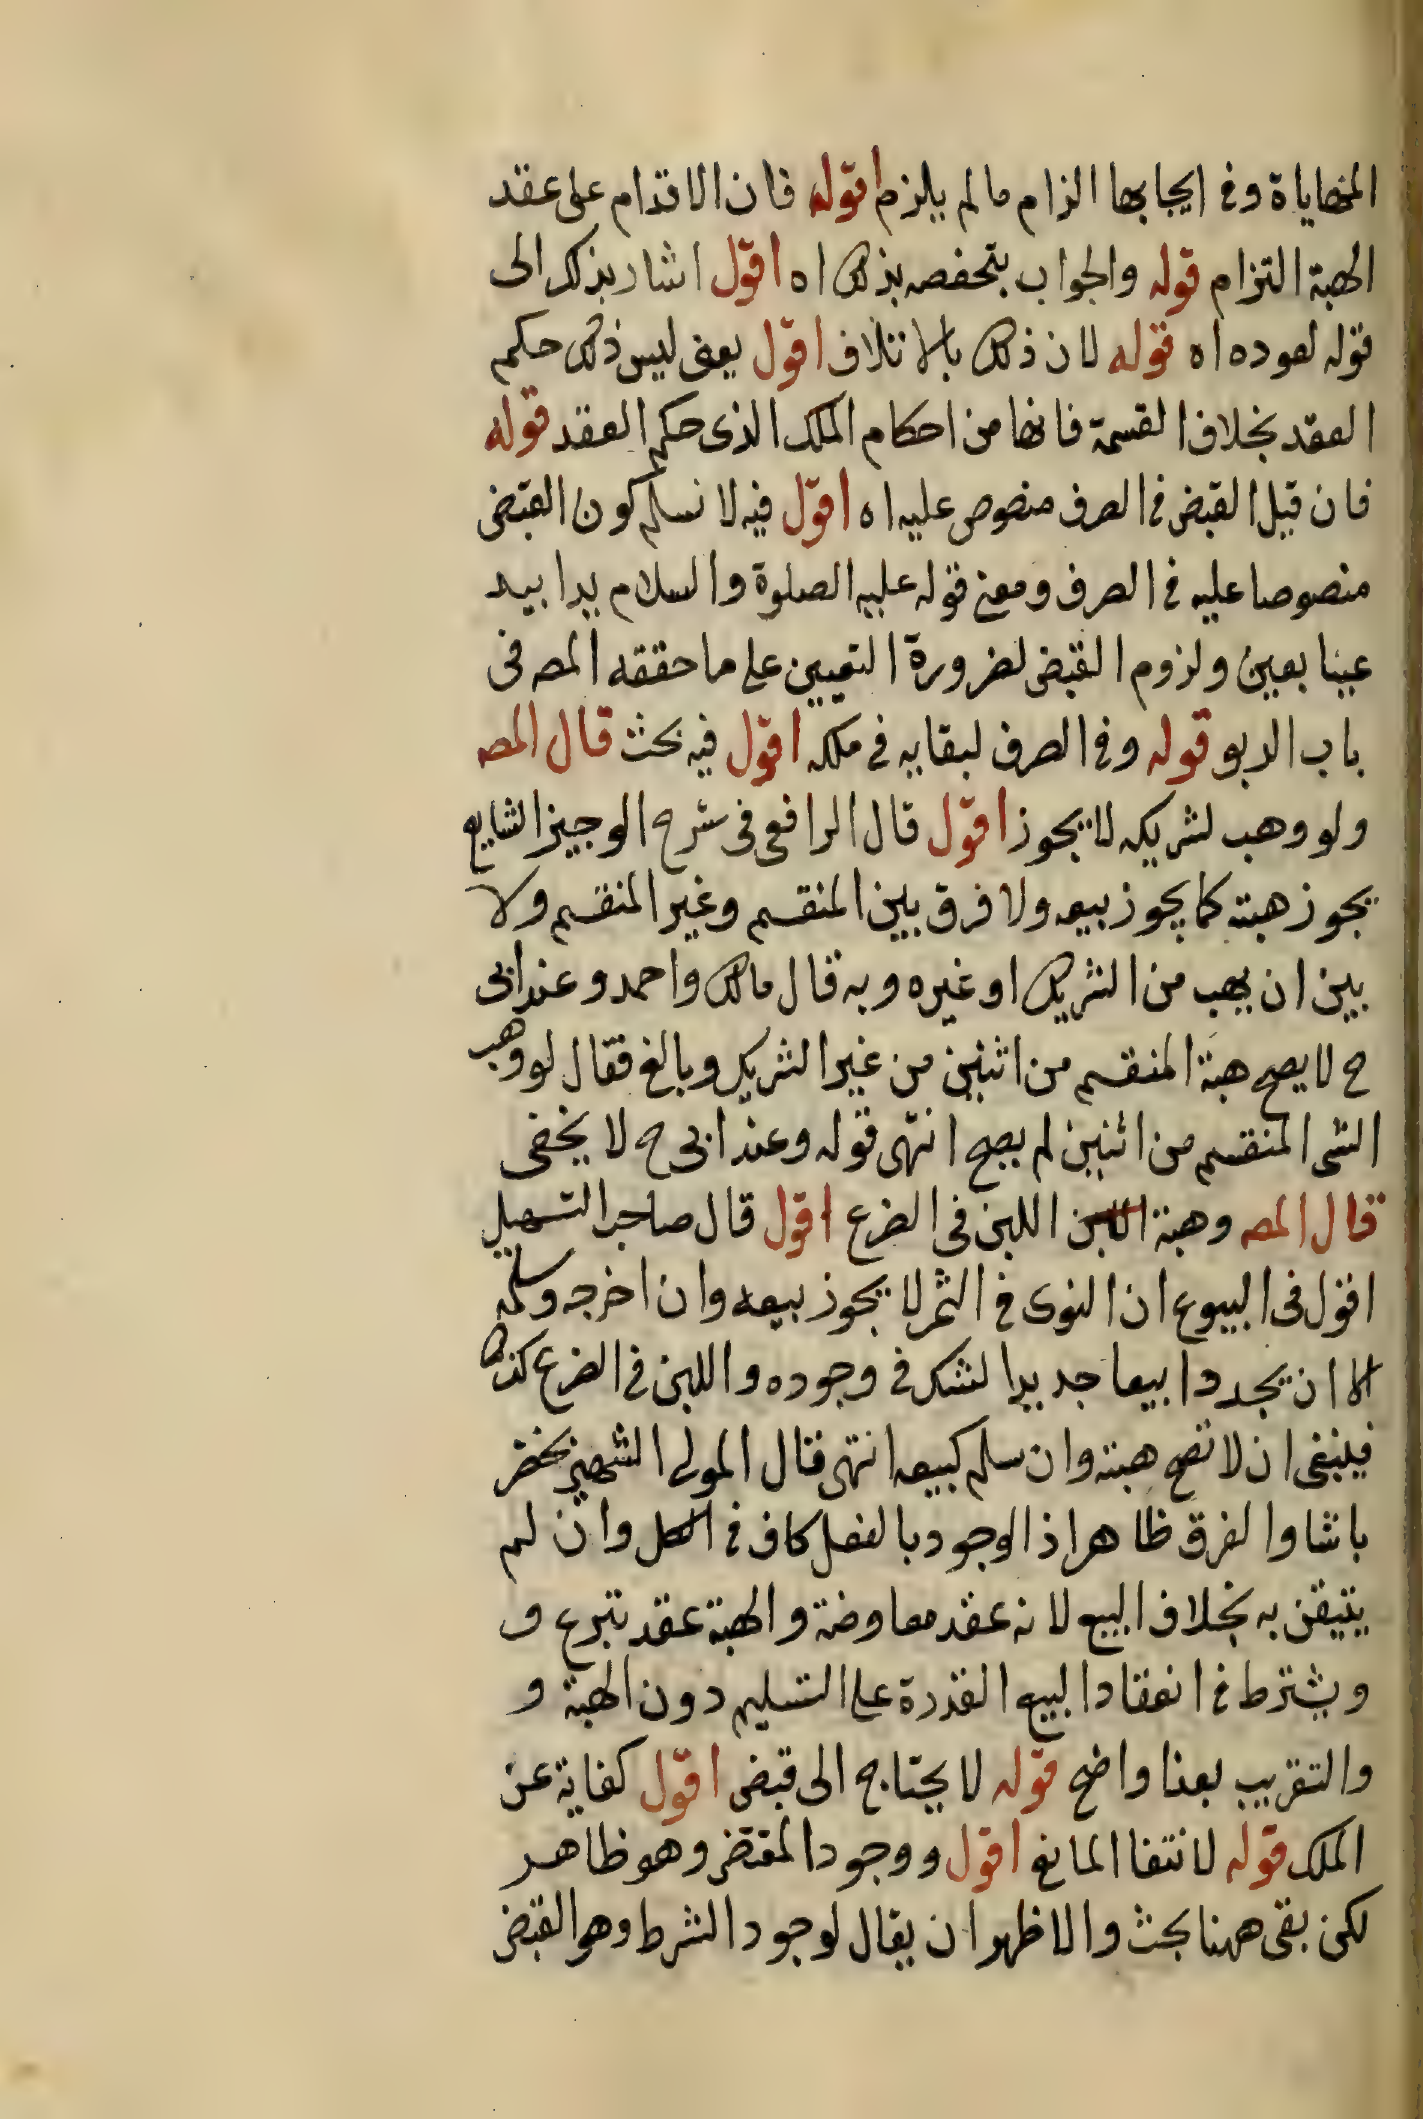 المهاياة وفى ايجابها الزام مالم يلزم اقوله فان الاقدام على عقد
الهبة التزام قوله والجواب بتحفصه بذلك اه اقول اشار بذكر الى
قوله لعوده اه قوله لان ذلك بالاتلاف اقول يعنى ليس ذلك حكم
العقد بخلاف القسمة فانها من احكام الملك الذى حكم العقد قوله
فان قيل القبض فى الصرف منصوص عليه اه اقول فيه لا نسلم كون القبض
منصوصا عليه فى الصرف ومعنى قوله عليه الصلوة والسلام يدا بيد
عينا بعين ولزوم القبض لضرورة التعيين على ما حققه المص فى
باب الربو قوله وفى الصرف لبقايه فى ملكه اقول فيه بحث قال المص
ولو وهب لشريكه لا يجوز اقول قال الرافعى فى شرح الوجيز الشايع
يجوز هبته كما يجوز بيعه ولا فرق بين المنقسم وغير المنقسم ولا
بين ان يهب من الشريك او غيره وبه قال مالك واحمد وعند ابى
ح لا يصح هبة المنقسم من اثنين من غير الشريك وبالغ فقال لو وهب
الشى المنقسم من اثنين لم يصح انتهى قوله وعند ابى ح لا يخفى
قال المص وهبة اللبن فى الضرع اقول قال صاحب التسهيل
اقول فى البيوع ان النوى فى التمر لا يجوز بيعه وان اخرجه وسلمه
الا ان يجددا بيعا جديدا لشك فى وجوده واللبن فى الضرع كذلك
فينبغى ان لا تصح هبته وان سلم كبيعه انتهى قال المولى الشهير بخضر
باشا والفرق ظاهر اذ الوجود بالفعل كاف فى الكل وان لم
يتيقن به بخلاف البيع لانه عقد معاوضة والهبة عقد تبرع و
ويشترط فى انعقاد البيع القدرة على التسليم دون الهبة و
والتقريب بعذا واضح قوله لا يحتاج الى قبض اقول كفاية عن
الملك قوله لانتفا المانع اقول ووجود المقتضى وهو ظاهر
لكن بقى ههنا بحث والاظهر ان يقال لوجود الشرط وهو القبض